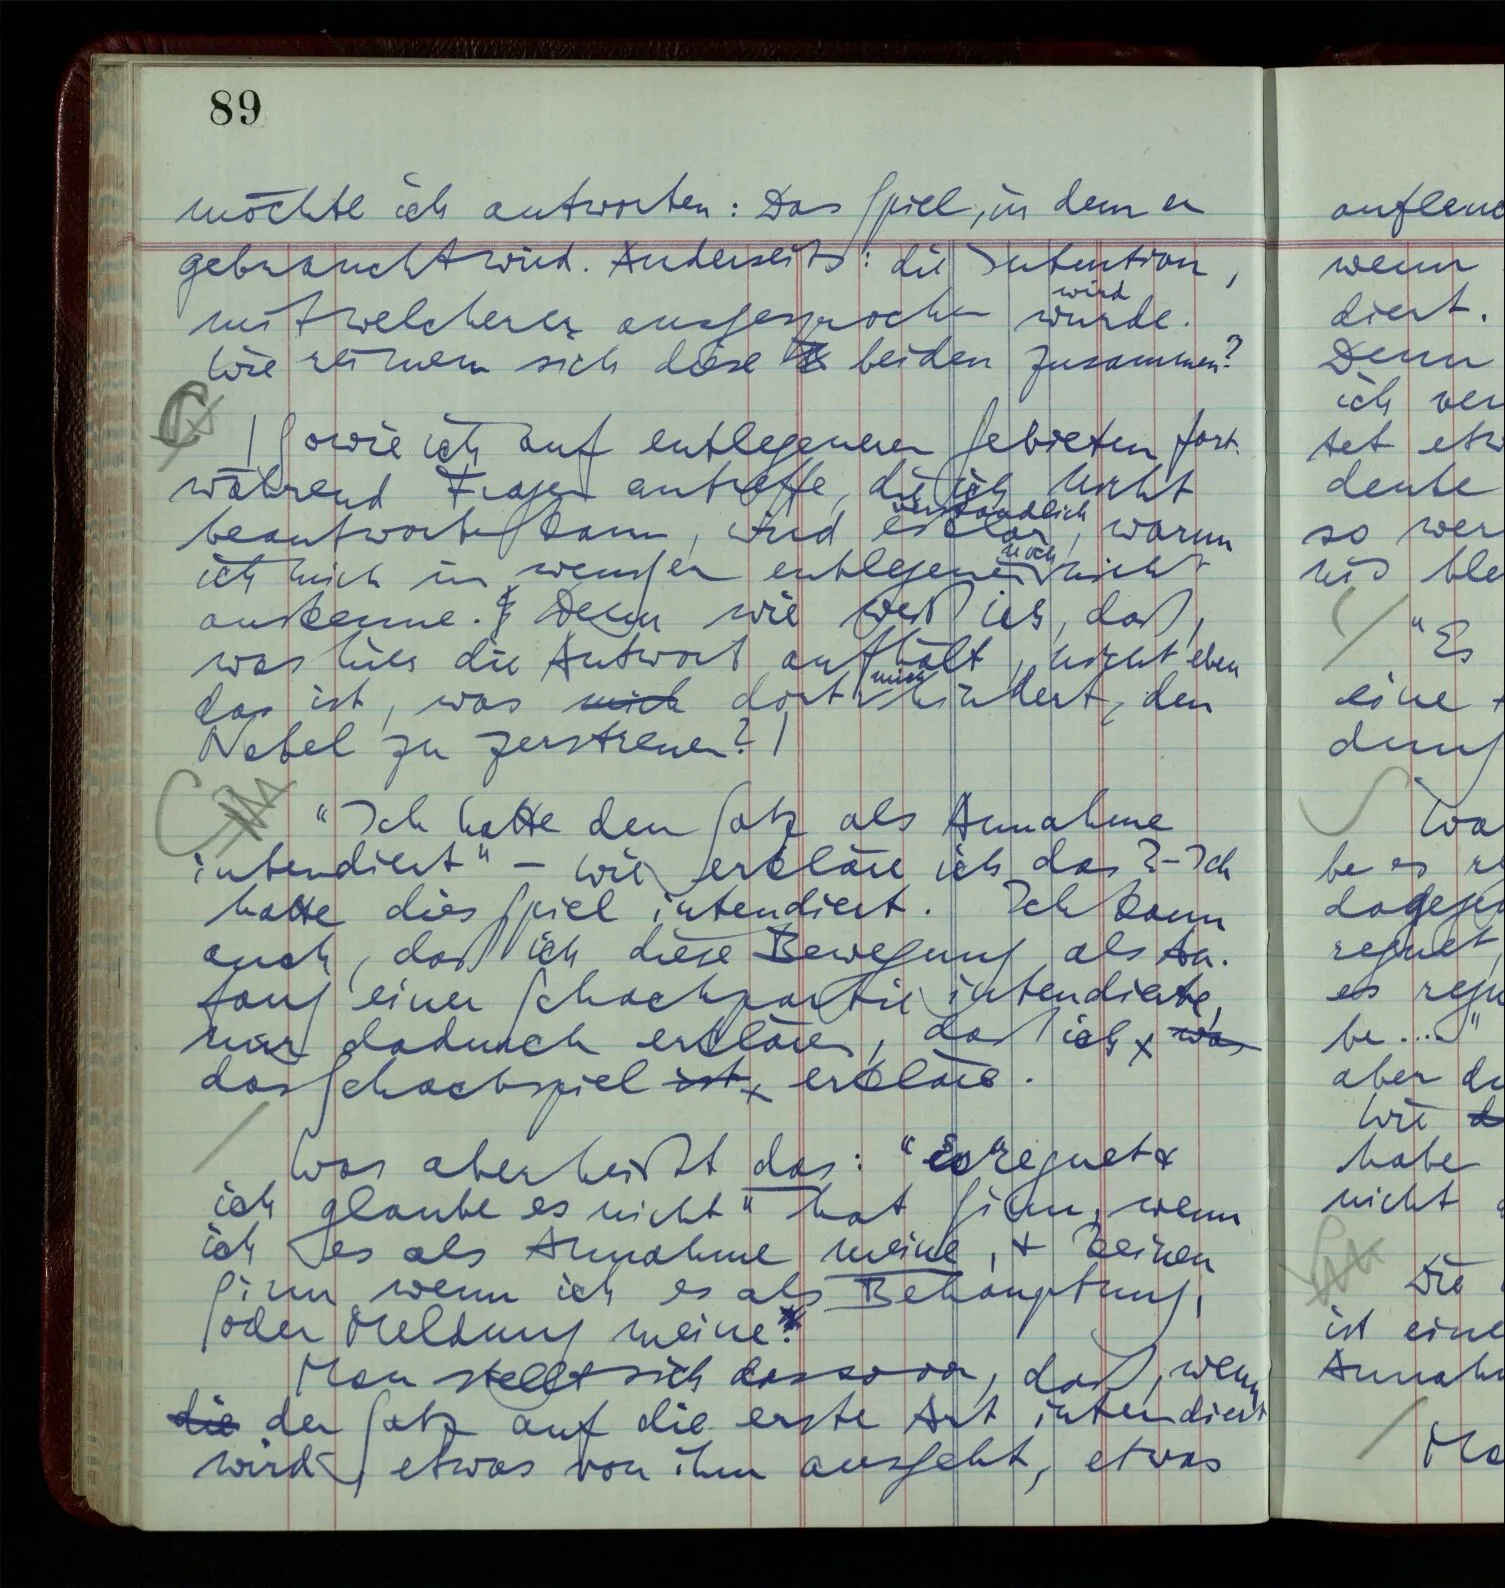 89
möchte ich antworten: Das Spiel, in dem er
gebraucht wird. Anderseits: die Intention,
mit welcher er ausgesprochen wurde.
wird
Wie reimen sich diese beiden zusammen?
| Sowie ich auf entlegenerer Gebieten fort-
während Fragen antreffe, die ich nicht
beantworten kann, wird es klar, warum
verständlich
ich mich in weniger entlegenen nicht
noch
auskenne. Denn wie weiß ich, daß,
was hier die Antwort aufhält, nicht eben
das ist, was mich dort hindert, den
mich
Nebel zu zerstreuen? |
"Ich hatte den Satz als Annahme
intendiert" – wie erkläre ich das? – Ich
hatte dies Spiel intendiert. Ich kann
auch, daß ich diese Bewegung als An-
fang einer Schachpartie intendierte,
nur dadurch erklären, daß ich was
das Schachspiel ist erkläre.
Was aber heißt das: "Es regnet &
ich glaube es nicht" hat Sinn, wenn
ich es als Annahme meine, & keinen
Sinn wenn ich es als Behauptung,
oder Meldung meine?
Man stellt sich das so vor, daß, wenn
die der Satz auf die erste Art intendiert
wird etwas von ihm ausgeht, etwas
aufleuc
wenn
diert.
Denn
ich ver
tet etw
deute
so wer
nis ble
"Es
eine
dung
Wa
be es re
dagegen
regnet,
es regn
be ...."
aber du
Wie d
habe
nicht
Die
ist eine
Annah
Ma